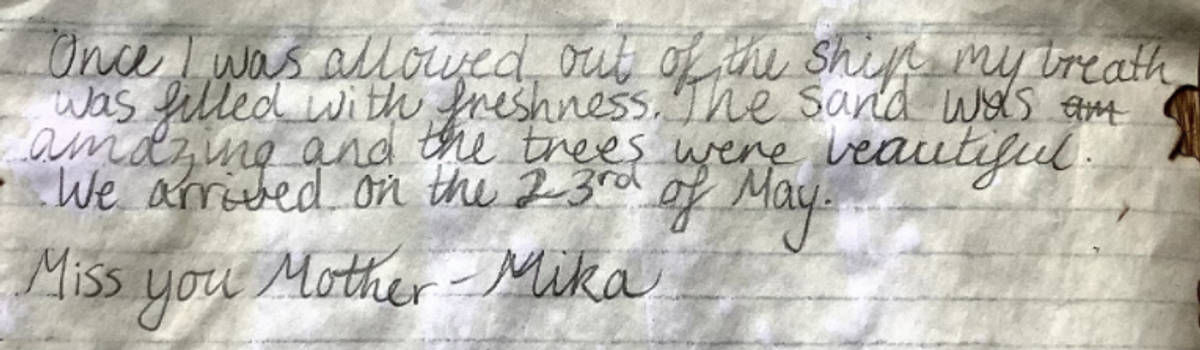 Once I was allowed out of the ship my breath
was filled with freshness. The sand was am
amazing and the trees were beautiful.
We arrived on the 23rd of May.
Miss you Mother - Mika